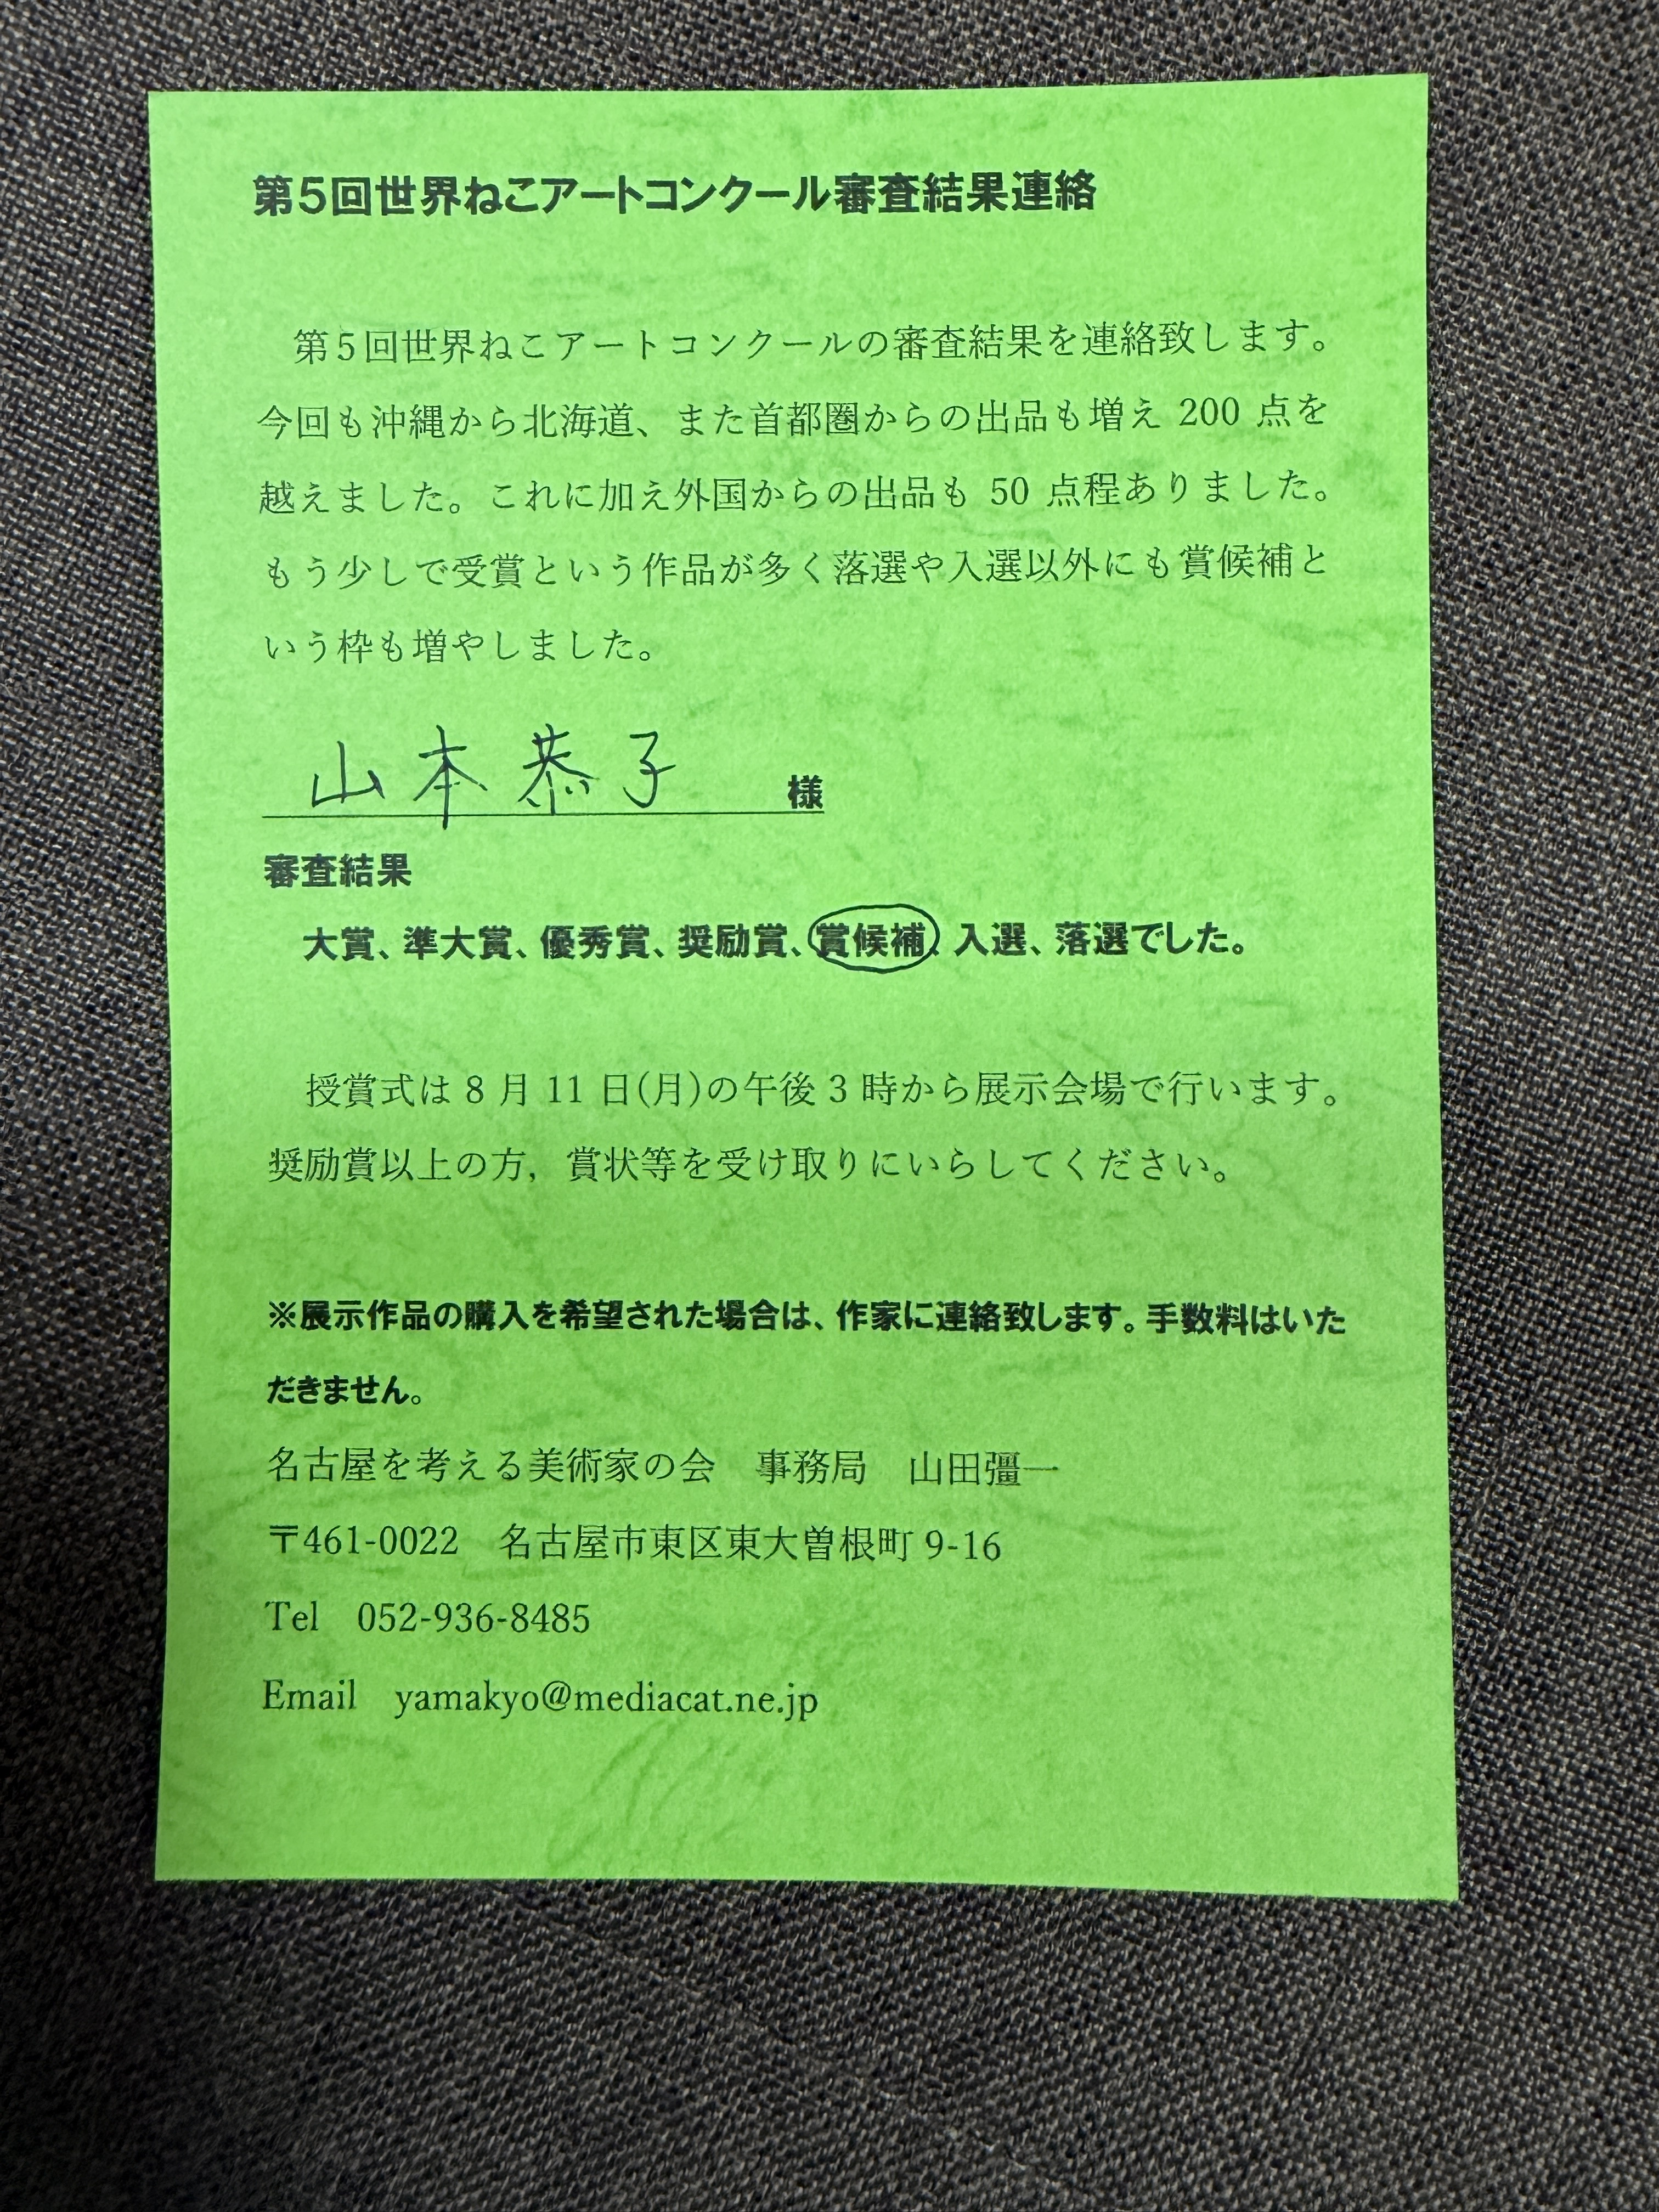 第5回世界ねこアートコンクール審査結果連絡
第5回世界ねこアートコンクールの審査結果を連絡致します。
今回も沖縄から北海道、また首都圏からの出品も増え 200 点を
越えました。これに加え外国からの出品も 50 点程ありました。
もう少しで受賞という作品が多く落選や入選以外にも賞候補と
いう枠も増やしました。
山本恭子 様
審査結果
大賞、準大賞、優秀賞、奨励賞、賞候補、入選、落選でした。
授賞式は 8 月 11 日(月)の午後 3 時から展示会場で行います。
奨励賞以上の方，賞状等を受け取りにいらしてください。
※展示作品の購入を希望された場合は、作家に連絡致します。手数料はいた
だきません。
名古屋を考える美術家の会　事務局　山田彊一
〒461-0022　名古屋市東区東大曽根町 9-16
Tel　052-936-8485
Email　yamakyo@mediacat.ne.jp